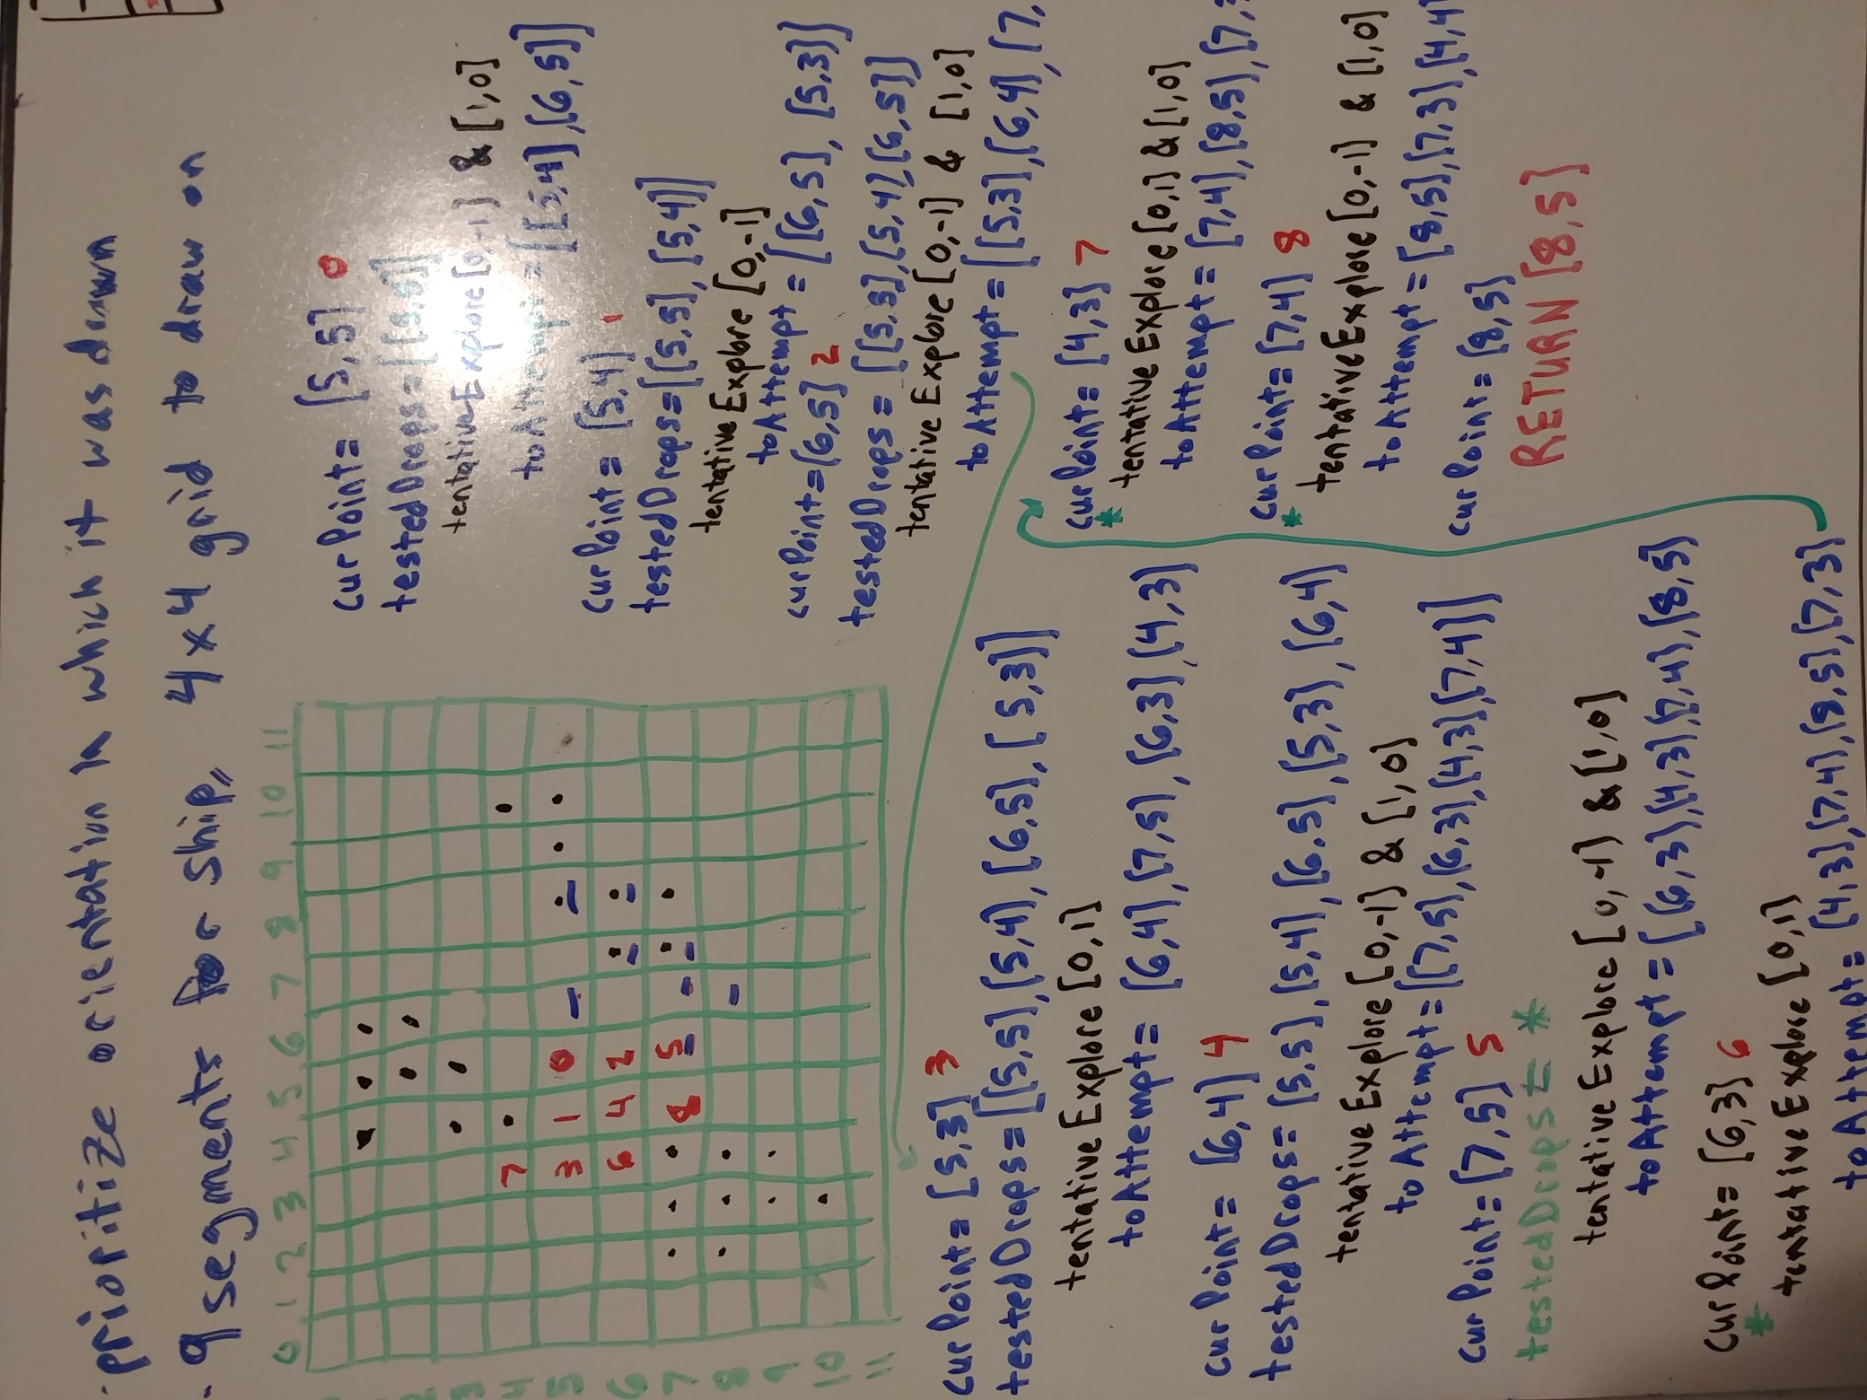 - prioritize orientation in which it was drawn
- 9 segments for ship, 4x4 grid to draw on
0 1 2 3 4 5 6 7 8 9 10 11
2
3
4 7
5 3 1 0
6 6 4 2
7 8 5
8
9
10
11
curPoint= [5,5] 0
testedDrops=[[5,5]]
tentativeExplore[0,-1] & [1,0]
toAttempt=[[5,4],[6,5]]
curPoint= [5,4] 1
testedDrops=[[5,5], [5,4]]
tentativeExplore [0,-1]
toAttempt=[[6,5], [5,3]]
curPoint=[6,5] 2
testedDrops= [[5,5],[5,4],[6,5]]
tentativeExplore[0,-1] & [1,0]
toAttempt=[[5,3],[6,4],[7,
curPoint= [5,3] 3
testedDrops=[[5,5],[5,4],[6,5],[5,3]]
tentativeExplore [0,1]
toAttempt= [6,4],[7,5],[6,3],[4,3]
curPoint= [6,4] 4
testedDrops= [5,5],[5,4],[6,5],[5,3],[6,4]
tentativeExplore [0,-1] & [1,0]
toAttempt=[[7,5],[6,3],[4,3],[7,4]]
curPoint=[7,5] 5
testedDrops= *
tentativeExplore [0,-1] & [1,0]
toAttempt=[[6,3],[4,3],[7,4],[8,5]
curPoint= [6,3] 6
* tentativeExplore [0,1]
toAttempt= [4,3],[7,4],[8,5],[7,3]
curPoint= [4,3] 7
* tentativeExplore[0,1] & [1,0]
toAttempt= [7,4],[8,5],[7,3
curPoint=[7,4] 8
* tentativeExplore[0,-1] & [1,0]
toAttempt=[8,5],[7,3],[4,4]
curPoint= [8,5]
RETURN [8,5]